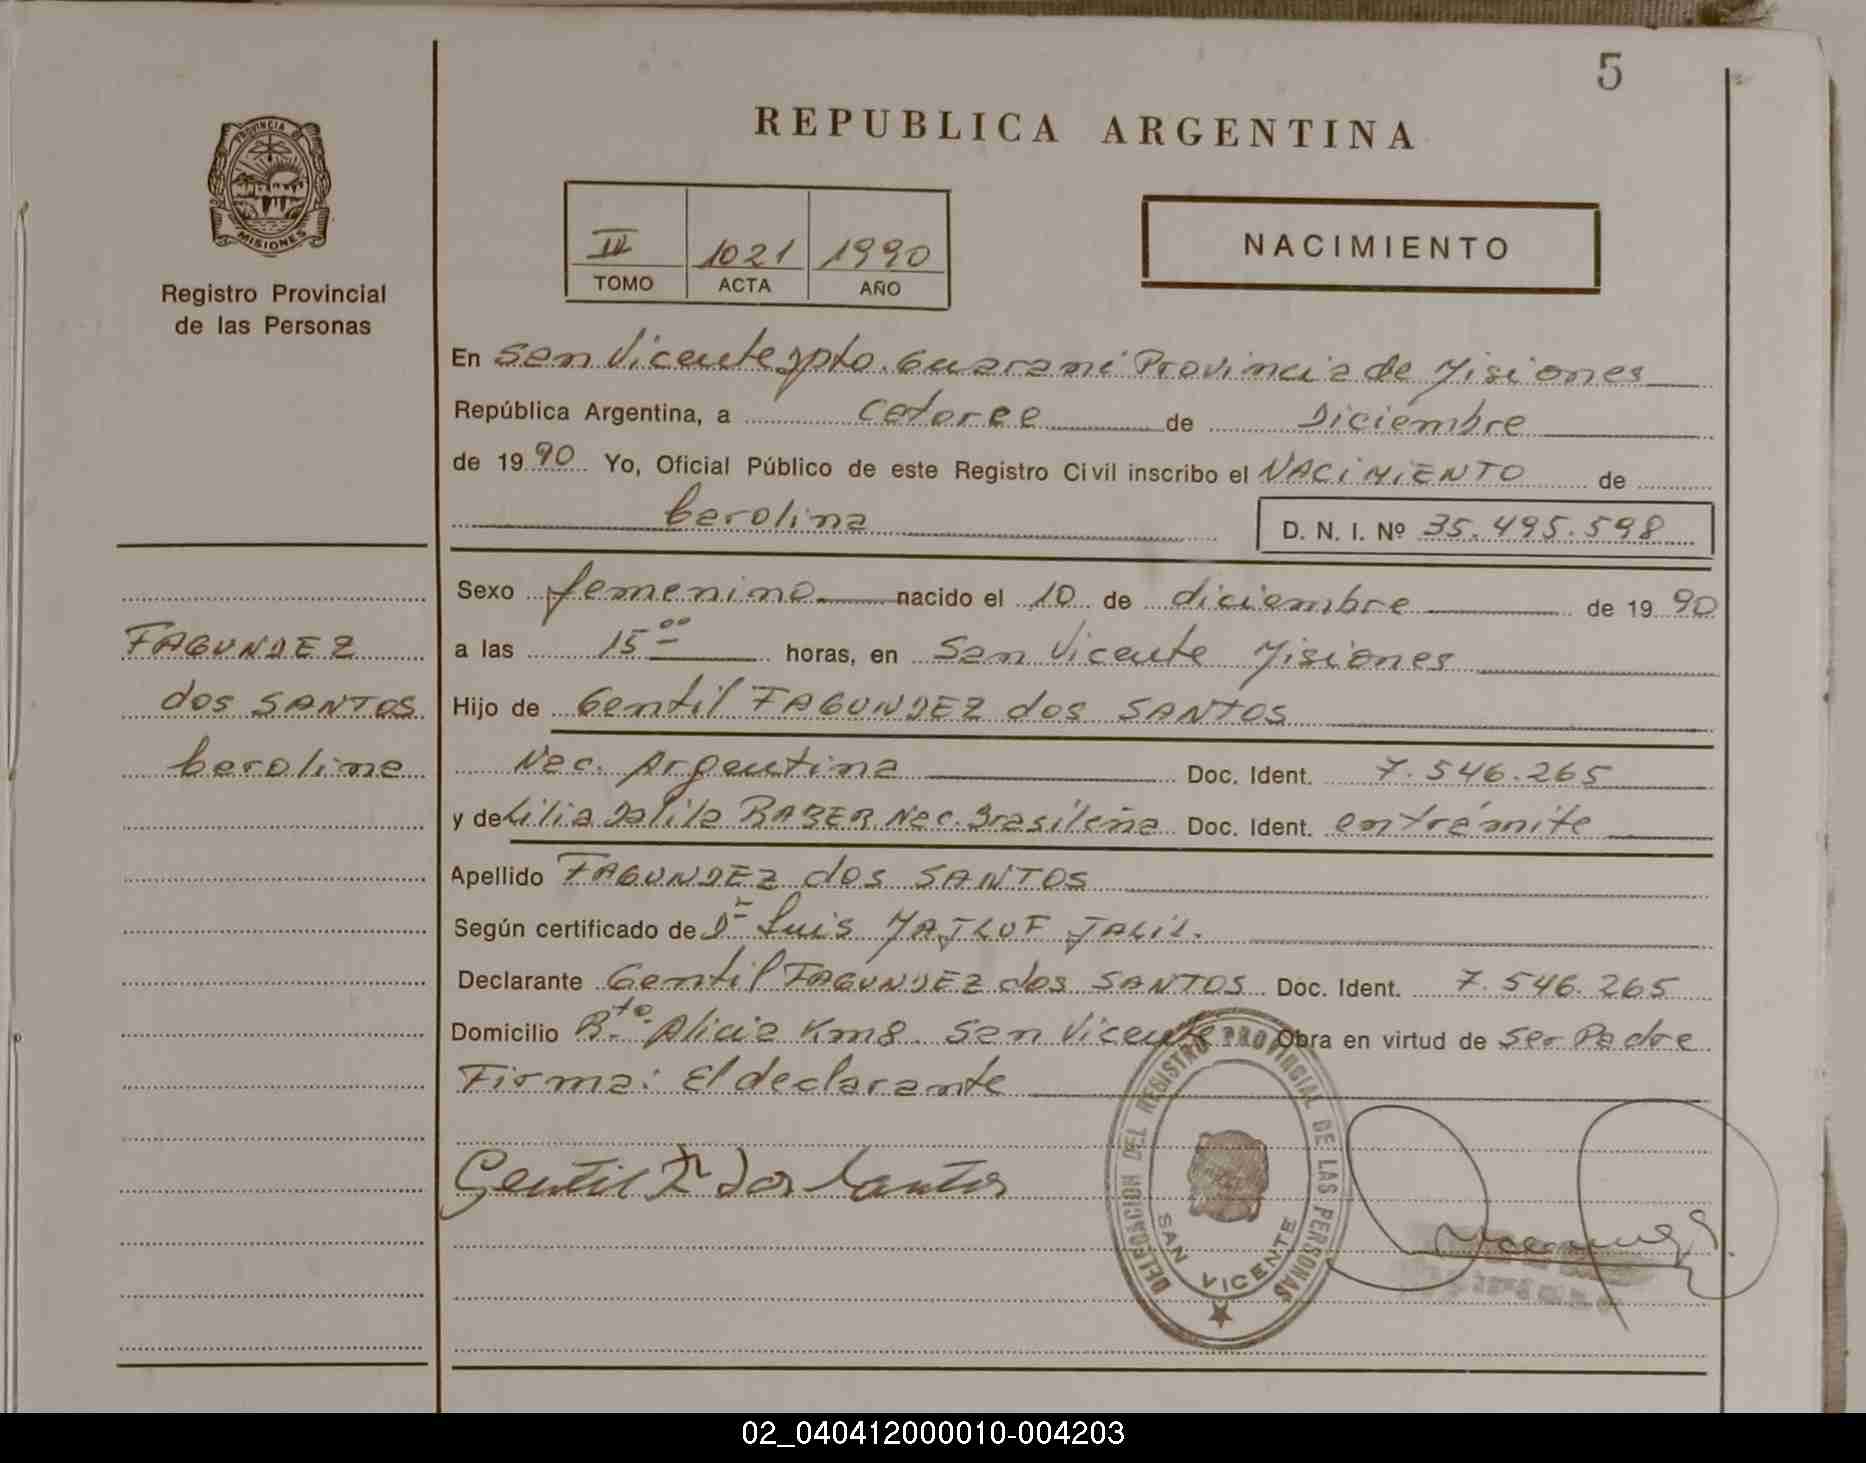 5
REPUBLICA ARGENTINA
PROVINCIA DE
MISIONES
Registro Provincial
de las Personas
IV 1021 1990
TOMO ACTA AÑO
NACIMIENTO
En San Vicente Dpto. Guaraní Provincia de Misiones
República Argentina, a Catorce de Diciembre
de 1990 Yo, Oficial Público de este Registro Civil inscribo el NACIMIENTO de
Carolina
D. N. I. Nº 35.495.598
Sexo femenino nacido el 10 de diciembre de 1990
a las 15 00 horas, en San Vicente Misiones
Hijo de Gentil FAGUNDEZ dos SANTOS
Nac. Argentina Doc. Ident. 7.546.265
y de Lilia Dalila RABER Nac. Brasileña Doc. Ident. en trámite
Apellido FAGUNDEZ dos SANTOS
Según certificado de Dr Luis MAJLUF JALIL.
Declarante Gentil FAGUNDEZ dos SANTOS Doc. Ident. 7.546.265
Domicilio Bto. Alicia Km8. San Vicente Obra en virtud de ser Padre
Firma: El declarante
Gentil F dos Santos
FAGUNDEZ
dos SANTOS
Carolina
DELEGACION DEL REGISTRO PROVINCIAL DE LAS PERSONAS
SAN VICENTE
02_040412000010-004203